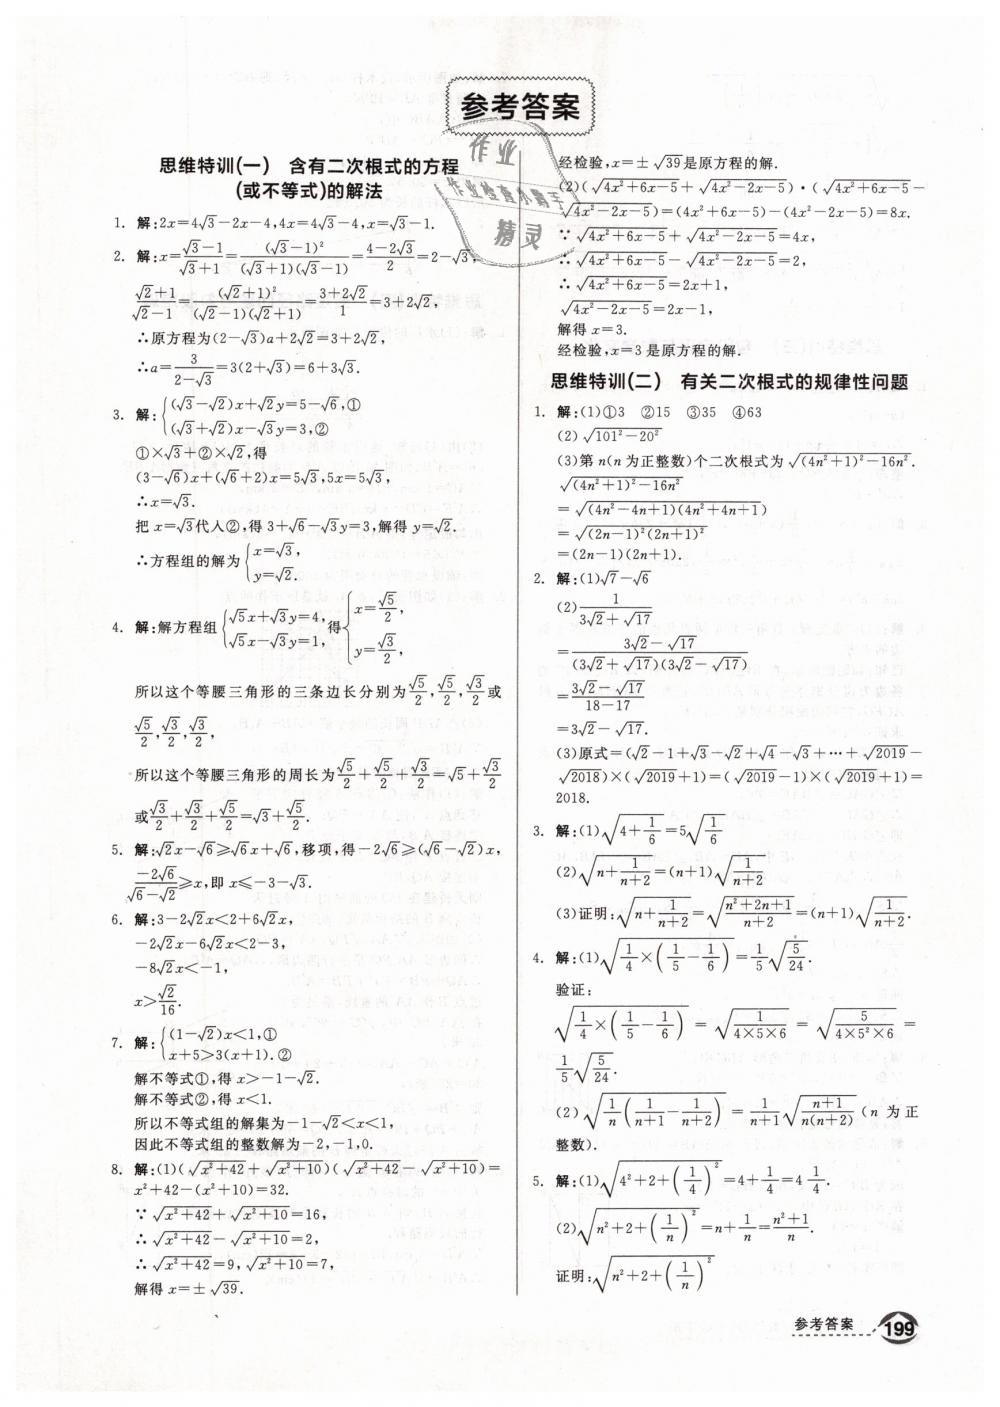 参考答案
思维特训(一)　含有二次根式的方程
(或不等式)的解法
1. 解:2x=4√3-2x-4,4x=4√3-4,x=√3-1.
2. 解:x=(√3-1)/(√3+1)=(√3-1)²/((√3+1)(√3-1))=(4-2√3)/2=2-√3,
(√2+1)/(√2-1)=(√2+1)²/((√2-1)(√2+1))=(3+2√2)/1=3+2√2,
∴原方程为(2-√3)a+2√2=3+2√2,
∴a=3/(2-√3)=3(2+√3)=6+3√3.
3. 解:{(√3-√2)x+√2y=5-√6,①
(√3+√2)x-√3y=3,②
①×√3+②×√2,得
(3-√6)x+(√6+2)x=5√3,5x=5√3,
∴x=√3.
把 x=√3代人②,得 3+√6-√3y=3,解得 y=√2.
∴方程组的解为{x=√3,
y=√2.
4. 解:解方程组{√5x+√3y=4, √5x-√3y=1,得{x=√5/2, y=√3/2,
所以这个等腰三角形的三条边长分别为√5/2,√5/2,√3/2或
√5/2,√3/2,√3/2,
所以这个等腰三角形的周长为√5/2+√5/2+√3/2=√5+√3/2
或√3/2+√3/2+√5/2=√3+√5/2.
5. 解:√2x-√6≥√6x+√6,移项,得-2√6≥(√6-√2)x,
-2√6/(√6-√2)≥x,即 x≤-3-√3.
6. 解:3-2√2x<2+6√2x,
-2√2x-6√2x<2-3,
-8√2x<-1,
x>√2/16.
7. 解:{(1-√2)x<1,①
x+5>3(x+1).②
解不等式①,得 x>-1-√2.
解不等式②,得 x<1.
所以不等式组的解集为-1-√2<x<1,
因此不等式组的整数解为-2,-1,0.
8. 解:(1)(√(x²+42)+√(x²+10))(√(x²+42)-√(x²+10))=
x²+42-(x²+10)=32.
∵√(x²+42)+√(x²+10)=16,
∴√(x²+42)-√(x²+10)=2,
∴√(x²+42)=9,√(x²+10)=7,
解得 x=±√39.
经检验,x=±√39是原方程的解.
(2)(√(4x²+6x-5)+√(4x²-2x-5))·(√(4x²+6x-5)-
√(4x²-2x-5))=(4x²+6x-5)-(4x²-2x-5)=8x.
∵√(4x²+6x-5)+√(4x²-2x-5)=4x,
∴√(4x²+6x-5)-√(4x²-2x-5)=2,
∴√(4x²+6x-5)=2x+1,
√(4x²-2x-5)=2x-1,
解得 x=3.
经检验,x=3 是原方程的解.
思维特训(二)　有关二次根式的规律性问题
1. 解:(1)①3　②15　③35　④63
(2)√(101²-20²)
(3)第 n(n 为正整数)个二次根式为√((4n²+1)²-16n²).
√((4n²+1)²-16n²)
=√((4n²-4n+1)(4n²+4n+1))
=√((2n-1)²(2n+1)²)
=(2n-1)(2n+1).
2. 解:(1)√7-√6
(2)1/(3√2+√17)
=(3√2-√17)/((3√2+√17)(3√2-√17))
=(3√2-√17)/(18-17)
=3√2-√17.
(3)原式=(√2-1+√3-√2+√4-√3+…+√2019-
√2018)×(√2019+1)=(√2019-1)×(√2019+1)=
2018.
3. 解:(1)√(4+1/6)=5√(1/6)
(2)√(n+1/(n+2))=(n+1)√(1/(n+2))
(3)证明:√(n+1/(n+2))=√((n²+2n+1)/(n+2))=(n+1)√(1/(n+2)).
4. 解:(1)√(1/4×(1/5-1/6))=1/5√(5/24).
验证:
√(1/4×(1/5-1/6))=√(1/(4×5×6))=√(5/(4×5²×6))=
1/5√(5/24).
(2)√(1/n(1/(n+1)-1/(n+2)))=1/(n+1)√((n+1)/(n(n+2)))(n 为正
整数).
5. 解:(1)√(4²+2+(1/4)²)=4+1/4=4 1/4.
(2)√(n²+2+(1/n)²)=n+1/n=(n²+1)/n.
证明:√(n²+2+(1/n)²)
参考答案
199
作业
作业检查小帮手
精灵